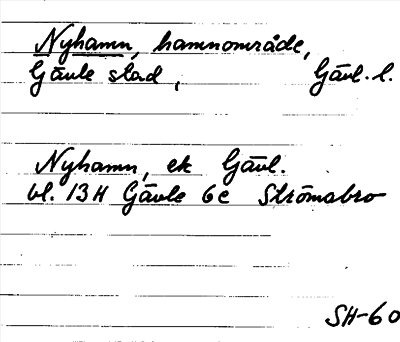 Nyhamn, hamnområde,
Gävle stad, Gävl. l.
Nyhamn, ek Gävl.
bl. 13H Gävle 6c Strömsbro
SH-60